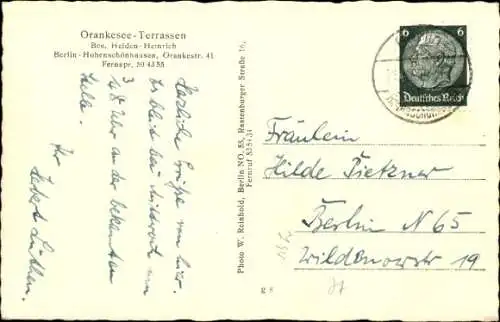 Orankesee-Terrassen
Bes. Heiden-Heinrich
Berlin-Hohenschönhausen, Orankestr. 41
Fernspr. 50 43 55
Herzliche Grüße von hier.
Es bleibt bei Mittwoch um
3/4 8 Uhr an der bekannten
Stelle.
Ihr
Photo W. Reinhold, Berlin NO. 55, Rastenburger Straße 16,
Fernruf 53 54 31
g 8
6 6
Deutsches Reich
Fräulein
Hilde Pietzner
Berlin N 65
Wildenowstr 19